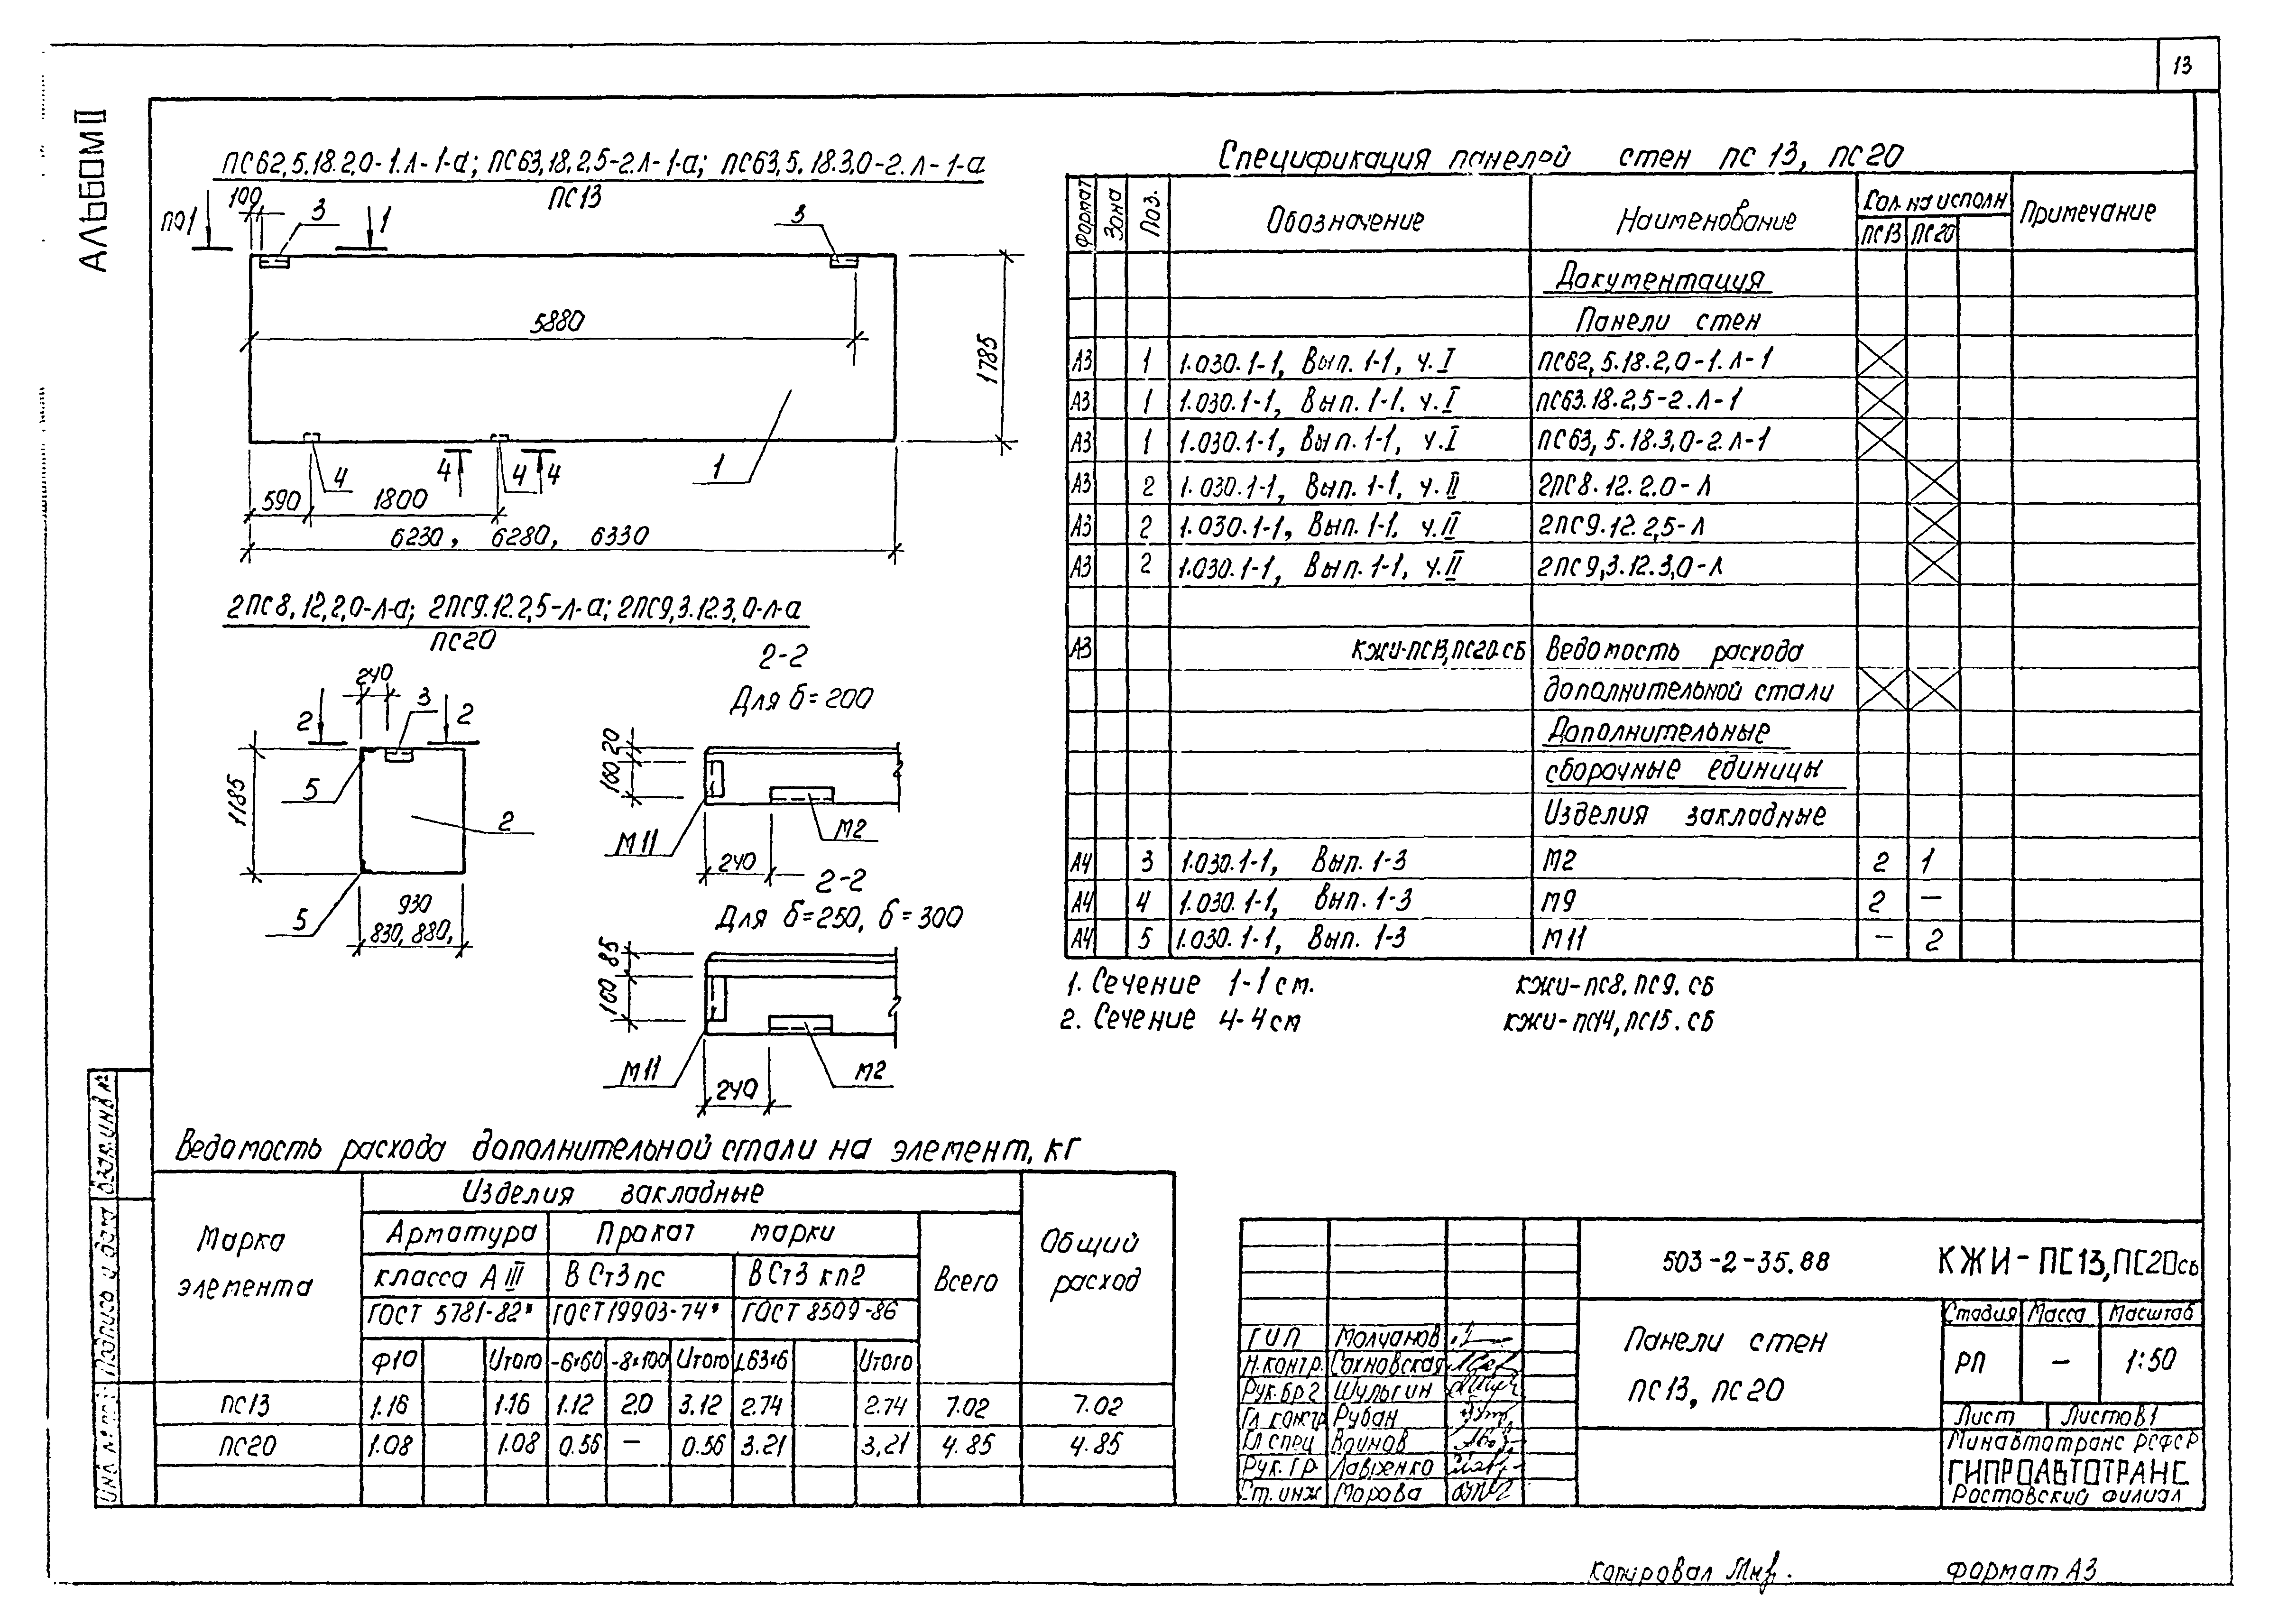 13
АЛЬБОМ II
ПС62,5.18.2,0-1.Л-1-а; ПС63,18.2,5-2Л-1-а; ПС63,5.18.3,0-2.Л-1-а
ПС13
по1
100
3
1
3
5880
1785
4
4
4
4
1
590
1800
6230, 6280, 6330
2ПС8,12,2,0-Л-а; 2ПС9.12.2,5-Л-а; 2ПС9,3.12.3,0-Л-а
ПС20
240
2
3
2
1185
5
2
5
930
830, 880,
2-2
Для δ=200
20
160
М11
М2
240
2-2
Для δ=250, δ=300
85
160
М11
М2
240
Спецификация панелей стен ПС13, ПС20
Формат
Зона
Поз.
Обозначение
Наименование
Кол. на исполн
ПС13
ПС20
Примечание
Документация
Панели стен
А3 1 1.030.1-1, Вып. 1-1, ч.I ПС62,5.18.2,0-1.Л-1
А3 1 1.030.1-1, Вып. 1-1. ч.I ПС63.18.2,5-2.Л-1
А3 1 1.030.1-1, Вып. 1-1, ч.I ПС63,5.18.3,0-2.Л-1
А3 2 1.030.1-1, Вып. 1-1, ч.II 2ПС8.12.2.0-Л
А3 2 1.030.1-1, Вып. 1-1, ч.II 2ПС9.12.2,5-Л
А3 2 1.030.1-1, Вып. 1-1, ч.II 2ПС9,3.12.3,0-Л
А3 КЖИ-ПС13,ПС20.СБ Ведомость расхода
дополнительной стали
Дополнительные
сборочные единицы
Изделия закладные
А4 3 1.030.1-1, Вып. 1-3 М2 2 1
А4 4 1.030.1-1, Вып. 1-3 М9 2 —
А4 5 1.030.1-1, Вып. 1-3 М11 — 2
1. Сечение 1-1 см. КЖИ-ПС8.ПС9.СБ
2. Сечение 4-4 см КЖИ-ПС14,ПС15.СБ
Ведомость расхода дополнительной стали на элемент, кг
Марка элемента
Изделия закладные
Общий расход
Арматура класса А III
ГОСТ 5781-82*
Прокат марки
ВСт3пс
ГОСТ 19903-74*
ВСт3кп2
ГОСТ 8509-86
Всего
Ф10 Итого -6×60 -8×100 Итого L63×6 Итого
ПС13 1.16 1.16 1.12 2.0 3.12 2.74 2.74 7.02 7.02
ПС20 1.08 1.08 0.56 — 0.56 3.21 3,21 4.85 4.85
Взам.инв.№
Подпись и дата
503-2-35.88
КЖИ-ПС13,ПС20СБ
ГИП Молчанов
Н.контр. Сахновская
Рук.бр2 Шульгин
Гл.контр Рубан
Гл спец Воинов
Рук.Гр. Лавренко
Ст.инж Морова
Панели стен
ПС13, ПС20
Стадия
Масса
Масштаб
РП
—
1:50
Лист
Листов 1
Минавтотранс РСФСР
ГИПРОАВТОТРАНС
Ростовский филиал
Копировал
Формат А3